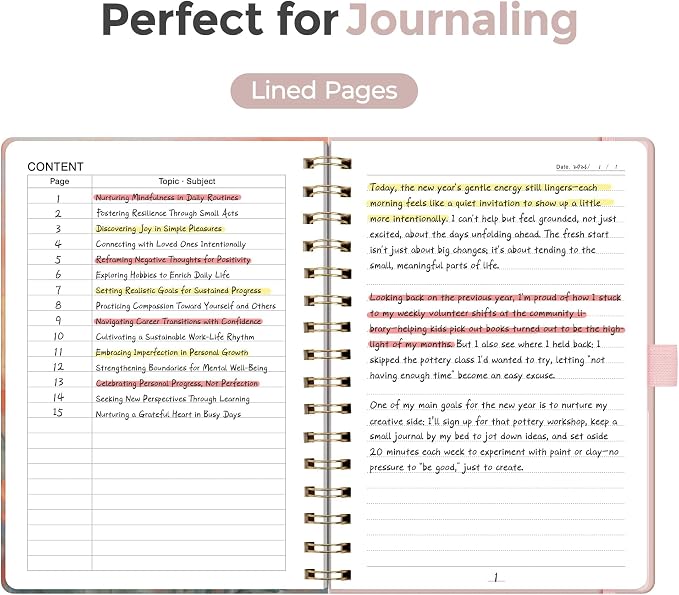 Perfect for Journaling
Lined Pages
CONTENT
Page Topic · Subject
1 Nurturing Mindfulness in Daily Routines
2 Fostering Resilience Through Small Acts
3 Discovering Joy in Simple Pleasures
4 Connecting with Loved Ones Intentionally
5 Reframing Negative Thoughts for Positivity
6 Exploring Hobbies to Enrich Daily Life
7 Setting Realistic Goals for Sustained Progress
8 Practicing Compassion Toward Yourself and Others
9 Navigating Career Transitions with Confidence
10 Cultivating a Sustainable Work-Life Rhythm
11 Embracing Imperfection in Personal Growth
12 Strengthening Boundaries for Mental Well-Being
13 Celebrating Personal Progress, Not Perfection
14 Seeking New Perspectives Through Learning
15 Nurturing a Grateful Heart in Busy Days
Date. 2026/ 1 / 1
Today, the new year's gentle energy still lingers—each
morning feels like a quiet invitation to show up a little
more intentionally. I can't help but feel grounded, not just
excited, about the days unfolding ahead. The fresh start
isn't just about big changes; it's about tending to the
small, meaningful parts of life.
Looking back on the previous year, I'm proud of how I stuck
to my weekly volunteer shifts at the community li-
brary—helping kids pick out books turned out to be the high-
light of my months. But I also see where I held back: I
skipped the pottery class I'd wanted to try, letting "not
having enough time" become an easy excuse.
One of my main goals for the new year is to nurture my
creative side: I'll sign up for that pottery workshop, keep a
small journal by my bed to jot down ideas, and set aside
20 minutes each week to experiment with paint or clay—no
pressure to "be good," just to create.
1